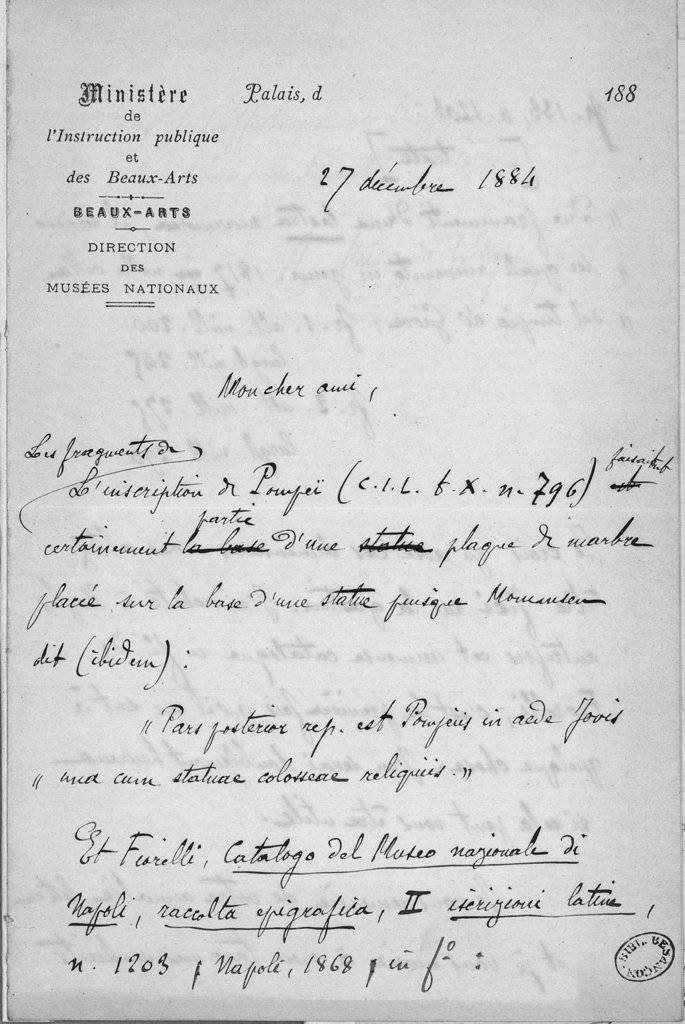 Ministère
de
l'Instruction publique
et
des Beaux-Arts
BEAUX-ARTS
DIRECTION
DES
MUSÉES NATIONAUX
Palais, d 188
27 décembre 1884
Mon cher ami,
Les fragments de
L'inscription de Pompeï (C.I.L. t. X. n. 796) est faisaient
partie
certainement la base d'une statue plaque de marbre
placée sur la base d'une statue puisque Mommsen
dit (ibidem) :
" Pars posterior rep. est Pompeiis in aede Jovis
" una cum statuae colosseae reliquiis. "
Et Fiorelli, Catalogo del Museo nazionale di
Napoli, raccolta epigrafica, II iscrizioni latine,
n. 1203, Napoli, 1868, in fo :
BIBL. BESANÇON